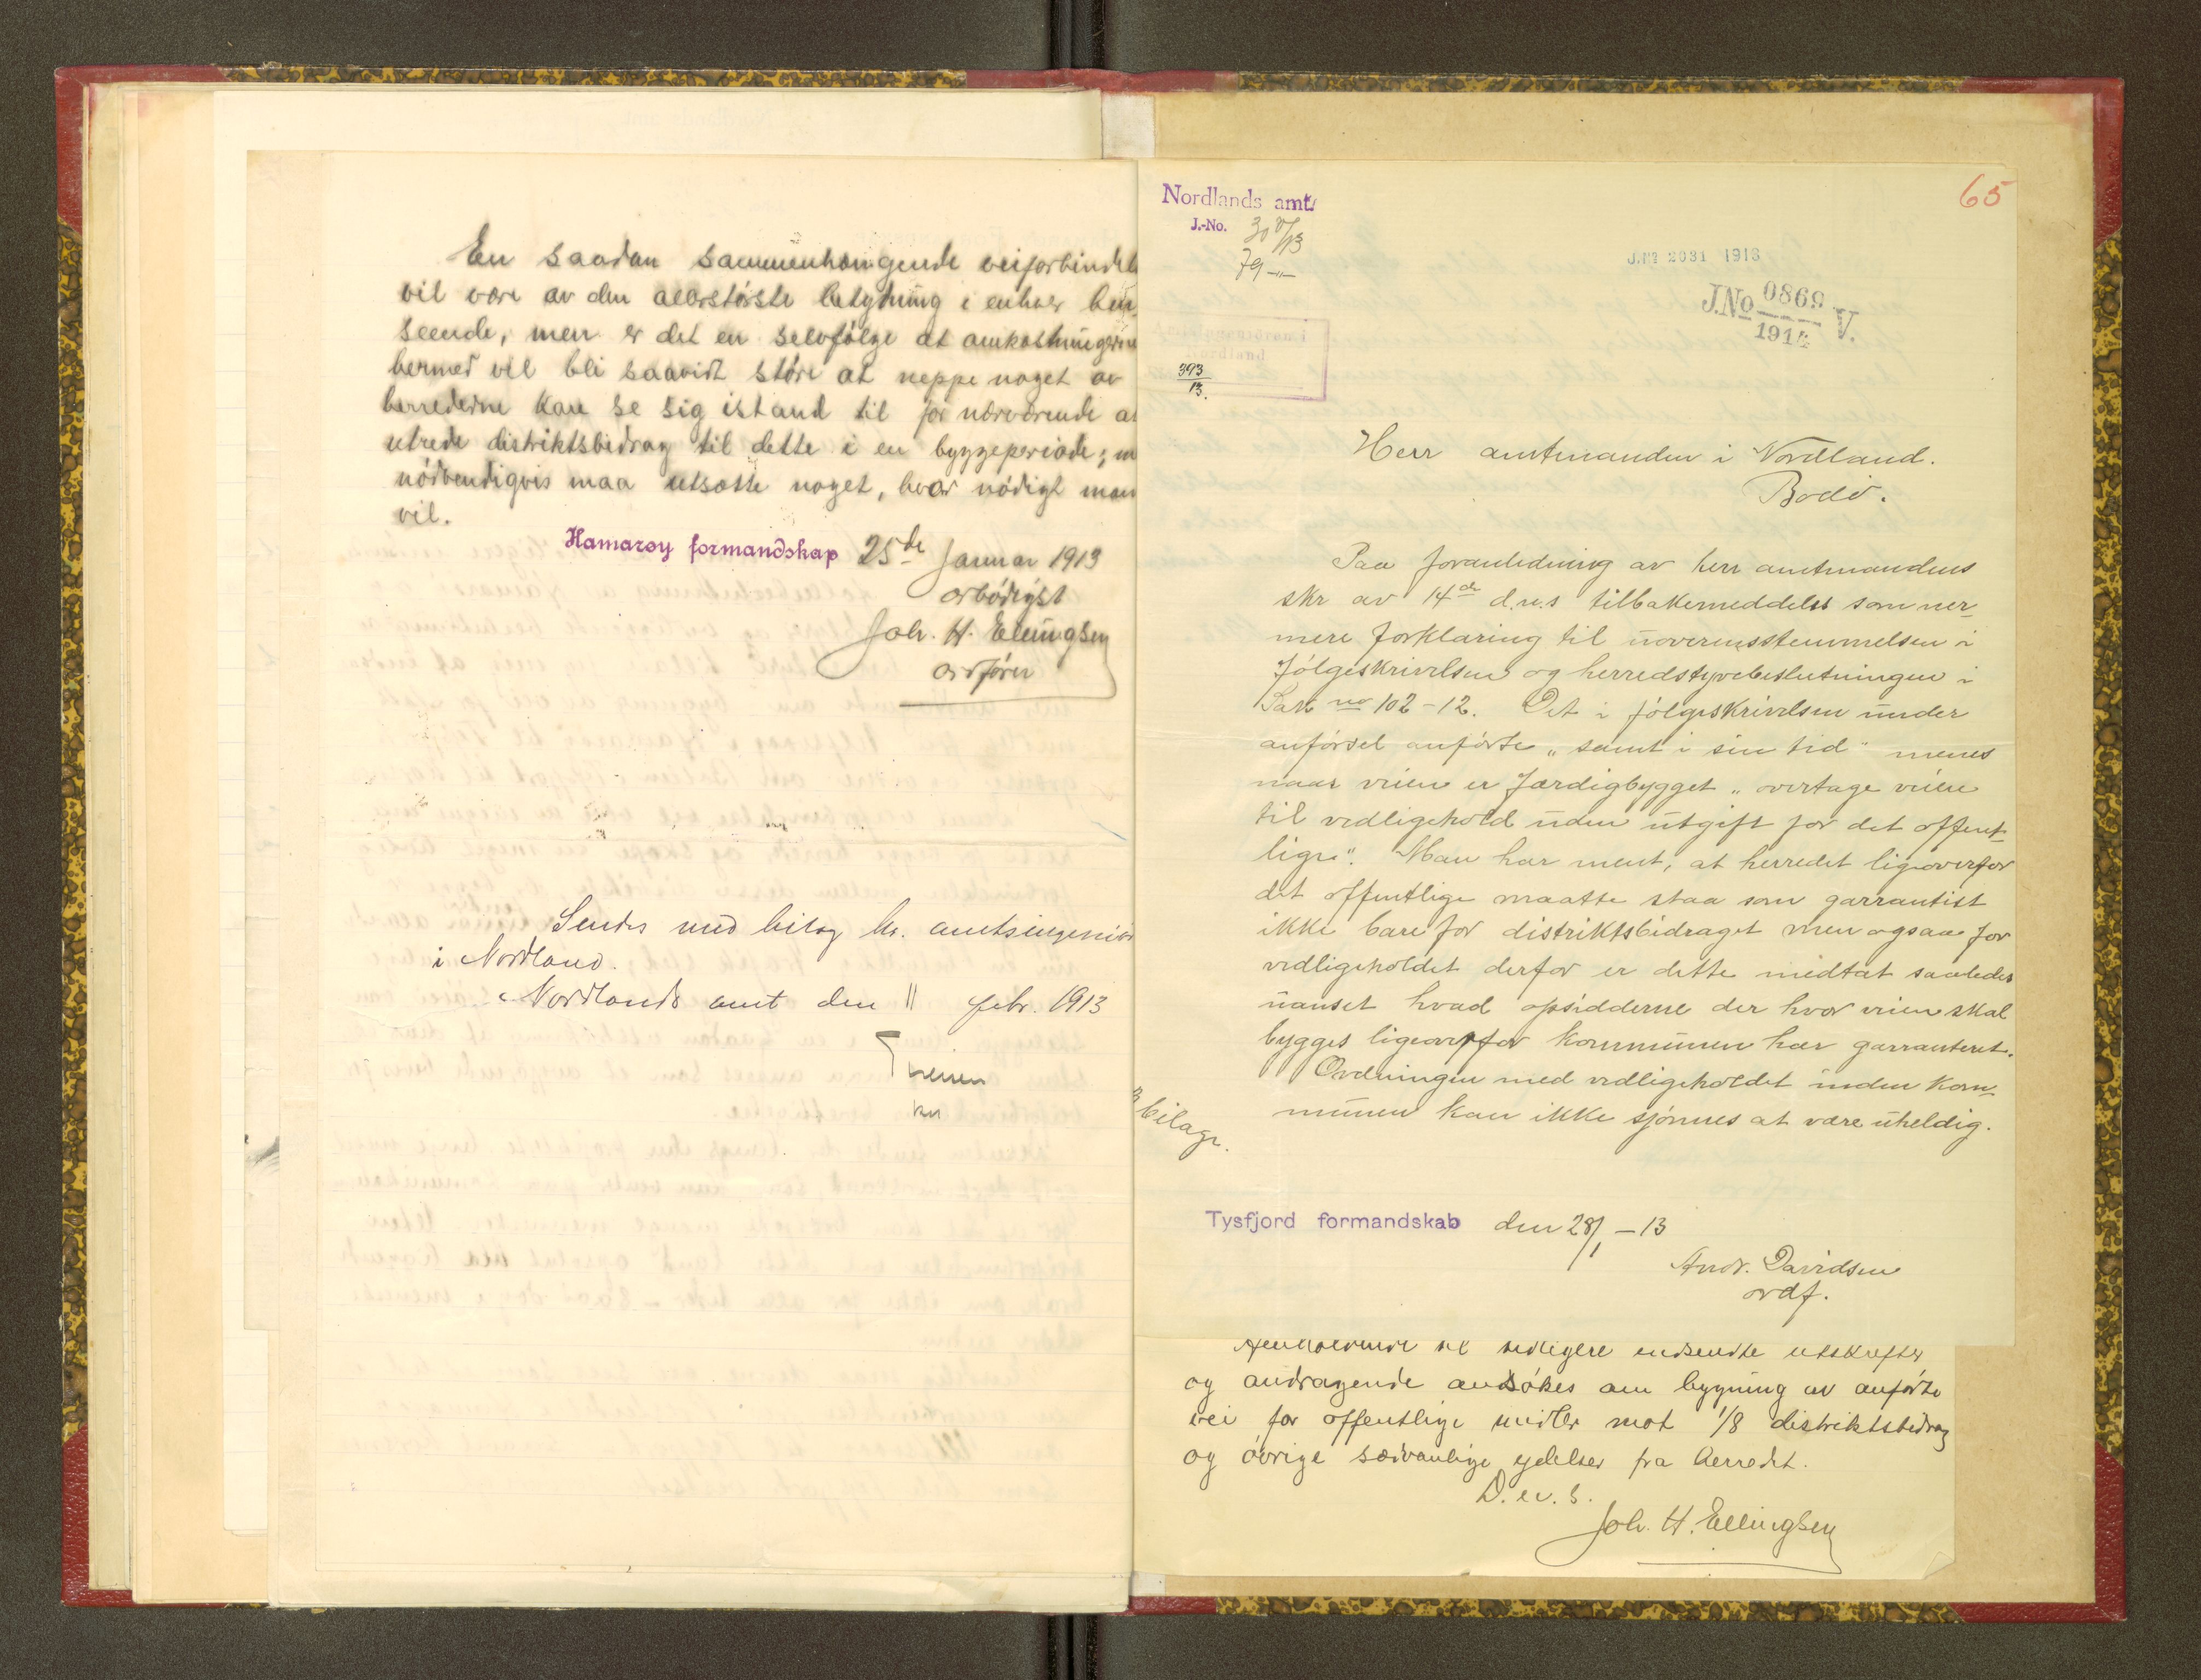 En saadan sammenhængende veiforbindel
vil være av den allerstørste betydning i enhver hen,
seende, men er det en selvfølge at omkostningerne
hermed vil bli saavidt større at neppe noget av
herrederne kan se sig istand til for nærværende at
utrede distriktsbidrag til dette i en byggeperiode; m
nødvendigvis maa utsætte noget, hvor nødigt man
vil.
Hamarøy formandskap 25de Januar 1913
ærbødigst
Joh. H. Ellingsen
ordfører
Sendes med bilag hr. amtsingeniør
i Nordland.
Nordlands amt den 11 febr. 1913
65
Nordlands amt
J.-No.
79 -"-
J.No 2031 1913
J.No 0869 V.
1914
Nordland
393
13.
Herr amtmanden i Nordland.
Bodø.
Paa foranledning av herr amtmandens
skr av 14de d.m.s tilbakemeddeles som nær_
mere forklaring til uoverensstemmelsen i
følgeskrivelsen og herredstyrebeslutningen i
Sak no 102-12. Det i følgeskrivelsen under
anførsel anførte "samt i sin tid" menes
naar veien er færdigbygget "overtage veien
til vedligehold uden utgift for det offent-
lige". Man har ment, at herredet ligeoverfor
det offentlige maatte staa som garrantist
ikke bare for distriktsbidraget men ogsaa for
vedligeholdet derfor er dette medtat saaledes
uanset hvad opsidderne der hvor veien skal
bygges ligeoverfor kommunen har garranteret.
Ordningen med vedligeholdet inden kom-
munen kan ikke sjønnes at være uheldig.
bilage.
Tysfjord formandskab den 28/1 - 13
Andr. Davidsen
ordf.
Henholdende til tidligere indsendte utskrifter
og andragende ansøkes om bygning av anførte
vei for offentlige midler mot 1/8 distriktsbidrag
og øvrige sædvanlige ydelser fra herredet.
D. u. s.
Joh. H. Ellingsen